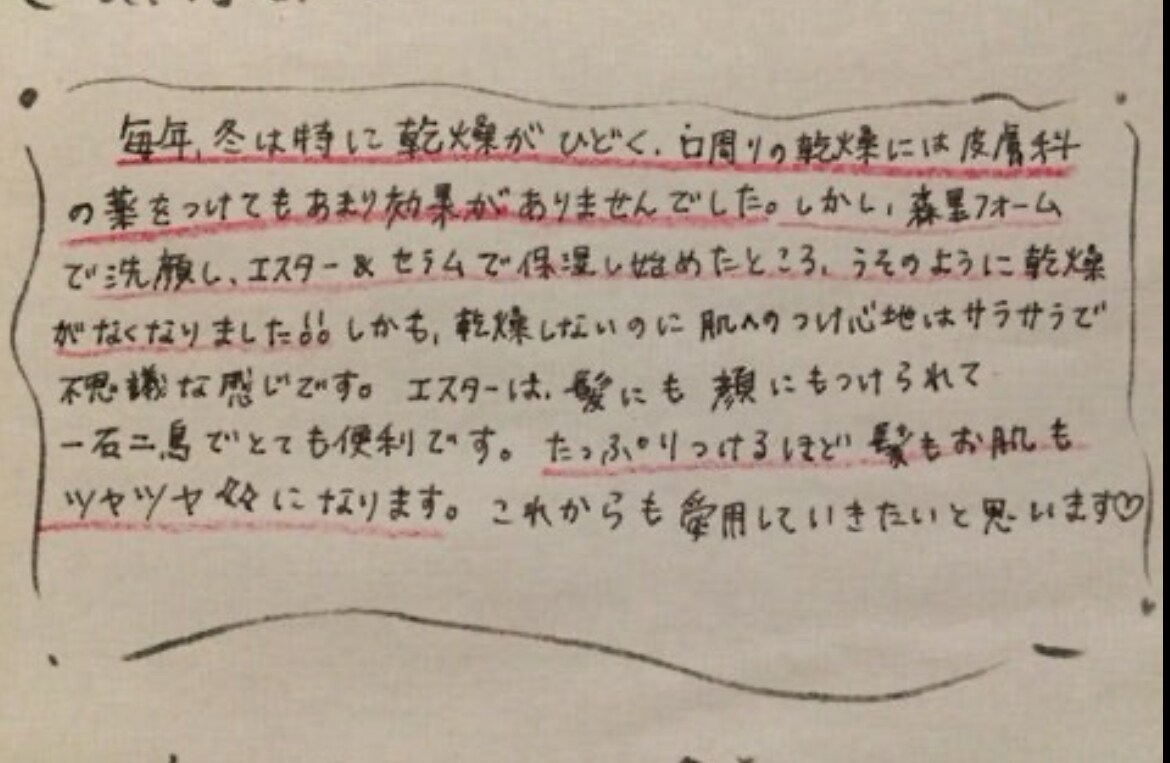 毎年、冬は特に乾燥がひどく、口周りの乾燥には皮膚科
の薬をつけてもあまり効果がありませんでした。しかし、森星フォーム
で洗顔し、エスター&セラムで保湿し始めたところ、うそのように乾燥
がなくなりました!! しかも、乾燥しないのに肌へのつけ心地はサラサラで
不思議な感じです。エスターは、髪にも顔にもつけられて
一石二鳥でとても便利です。たっぷりつけるほど髪もお肌も
ツヤツヤ になります。これからも愛用していきたいと思います♡